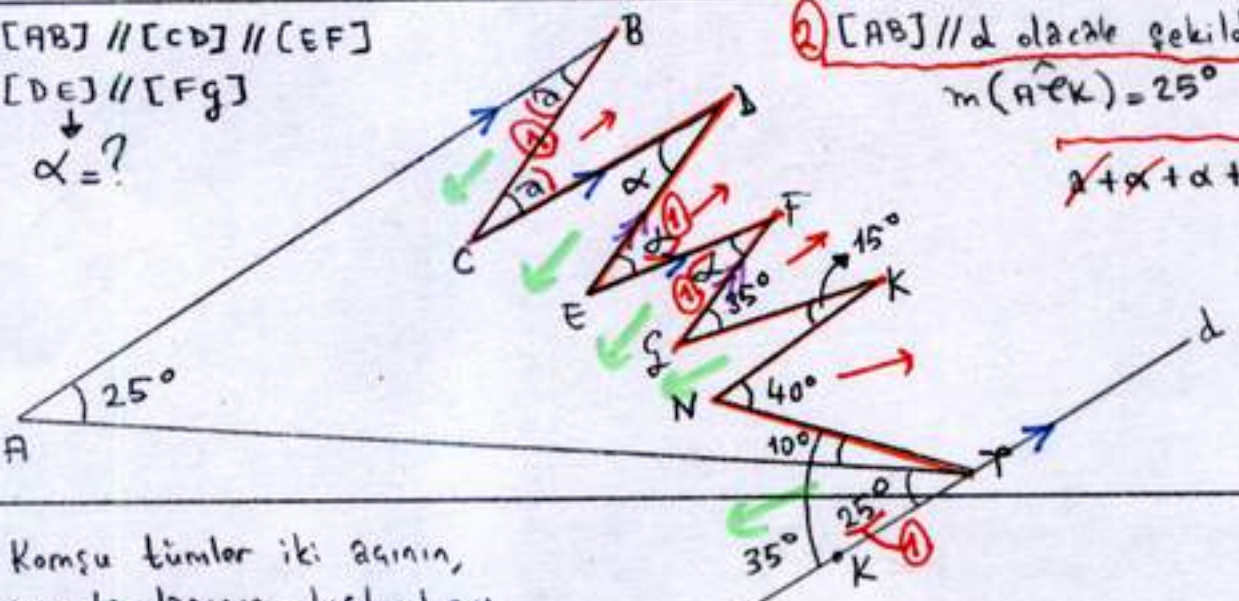 [AB] // [CD] // [EF]
[DE] // [FG]
α = ?
2 [AB] // d olacak şekild
m(APK) = 25°
a + α + α +
B
a
1
D
a
α
C
1
F
α
15°
α
1
35°
K
E
G
d
25°
N
40°
A
10°
P
25°
1
35°
K
Komşu tümler iki açının,